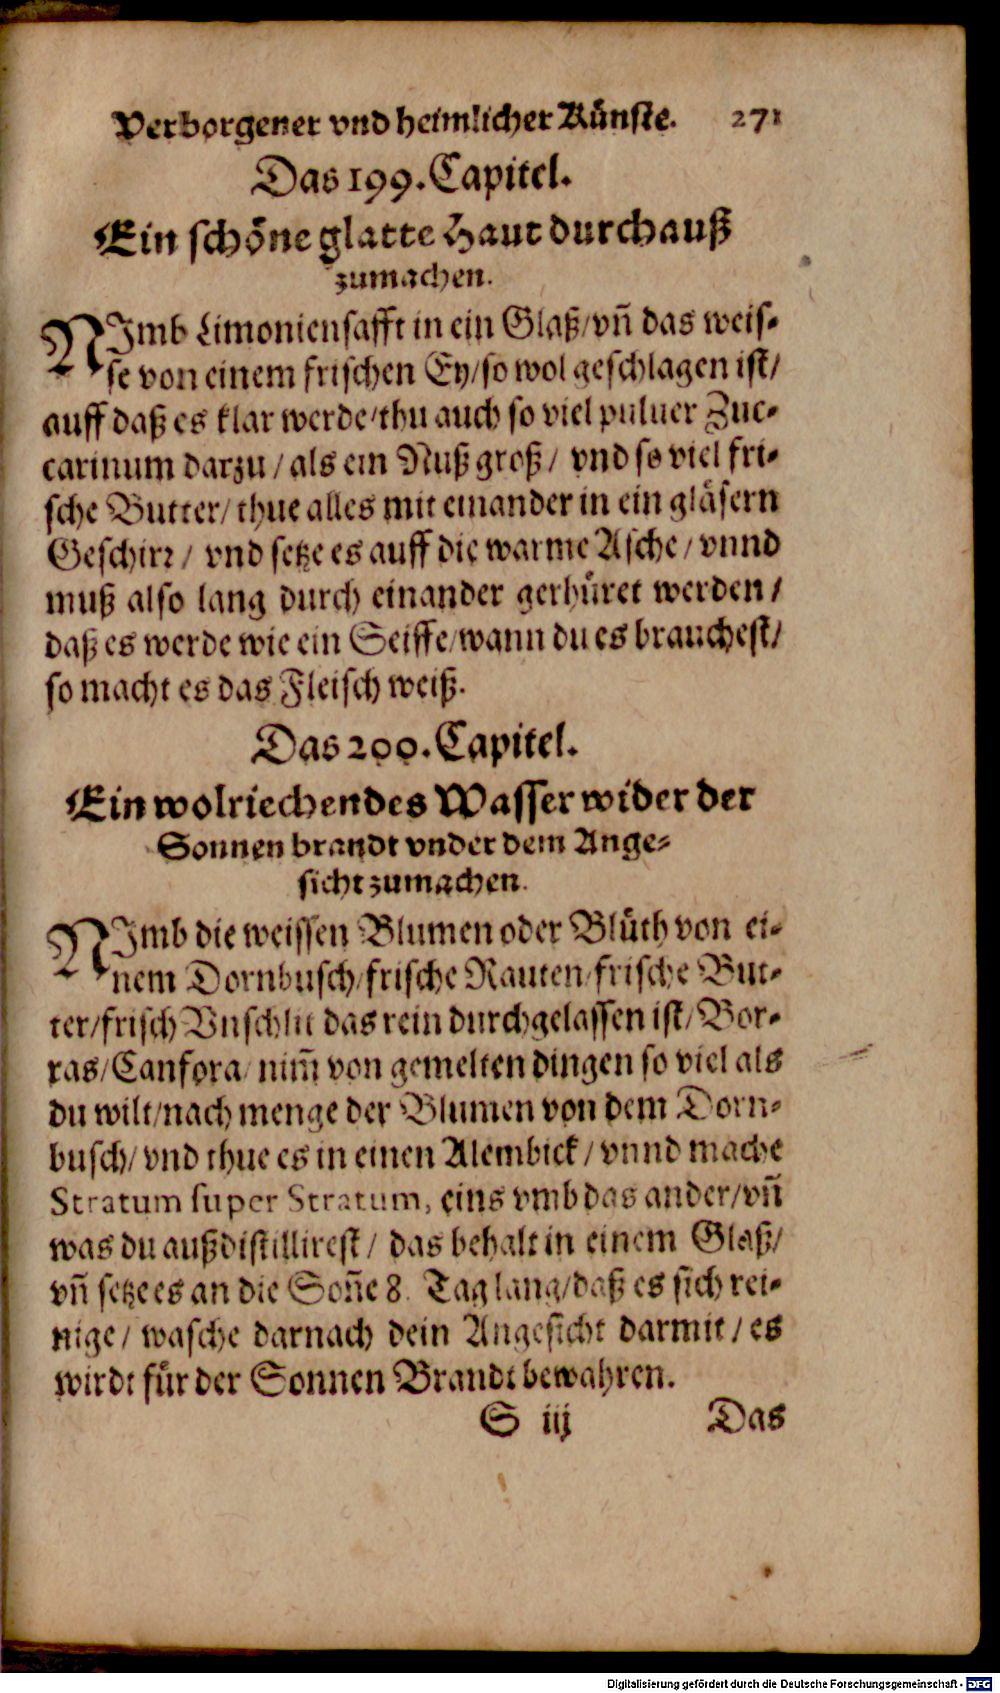 Verborgener vnd heimlicher Künste. 271
Das 199. Capitel.
Ein schöne glatte Haut durchauß
zumachen.
NImb Limoniensafft in ein Glaß/vñ das weis-
se von einem frischen Ey/so wol geschlagen ist/
auff daß es klar werde/thu auch so viel puluer Zuc-
carinum darzu/als ein Nuß groß/ vnd so viel fri-
sche Butter/thue alles mit einander in ein gläsern
Geschirr/ vnd setze es auff die warme Asche/vnnd
muß also lang durch einander gerhüret werden/
daß es werde wie ein Seiffe/wann du es brauchest/
so macht es das Fleisch weiß.
Das 200. Capitel.
Ein wolriechendes Wasser wider der
Sonnen brandt vnder dem Ange-
sicht zumachen.
NImb die weissen Blumen oder Blüth von ei-
nem Dornbusch/frische Rauten/frische But-
ter/frisch Vnschlit das rein durchgelassen ist/Bor-
ras/Canfora/nim̃ von gemelten dingen so viel als
du wilt/nach menge der Blumen von dem Dorn-
busch/vnd thue es in einen Alembick/vnnd mache
Stratum super Stratum, eins vmb das ander/vñ
was du außdistillirest/ das behalt in einem Glaß/
vñ setze es an die Soñe 8. Tag lang/daß es sich rei-
nige/ wasche darnach dein Angesicht darmit/es
wirdt für der Sonnen Brandt bewahren.
S iij Das
Digitalisierung gefördert durch die Deutsche Forschungsgemeinschaft - DFG